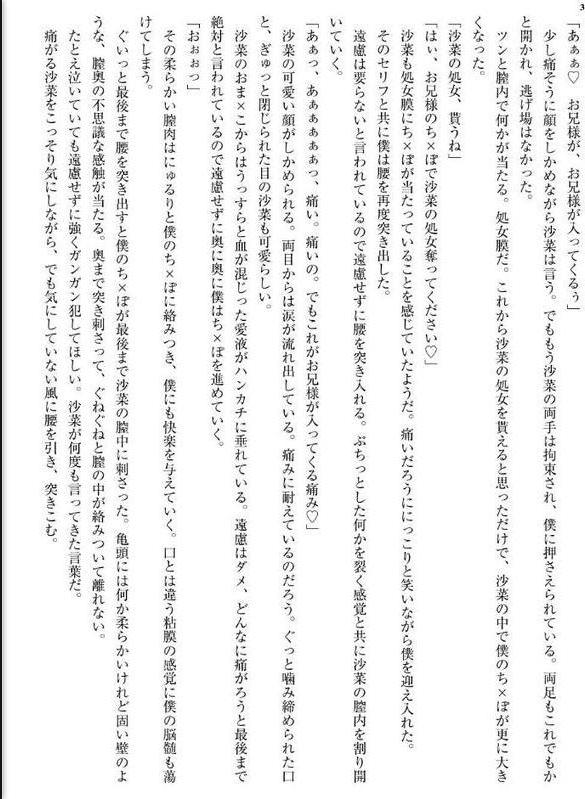 3
「あぁぁ♡　お兄様が、お兄様が入ってくるぅ」
少し痛そうに顔をしかめながら沙菜は言う。でももう沙菜の両手は拘束され、僕に押さえられている。両足もこれでもか
と開かれ、逃げ場はなかった。
ツンと膣内で何かが当たる。処女膜だ。これから沙菜の処女を貰えると思っただけで、沙菜の中で僕のち×ぽが更に大き
くなった。
「沙菜の処女、貰うね」
「はぃ、お兄様のち×ぽで沙菜の処女奪ってください♡」
沙菜も処女膜にち×ぽが当たっていることを感じていたようだ。痛いだろうににっこりと笑いながら僕を迎え入れた。
そのセリフと共に僕は腰を再度突き出した。
遠慮は要らないと言われているので遠慮せずに腰を突き入れる。ぶちっとした何かを裂く感覚と共に沙菜の膣内を割り開
いていく。
「あぁっ、あぁぁぁぁぁっ、痛い。痛いの。でもこれがお兄様が入ってくる痛み♡」
沙菜の可愛い顔がしかめられる。両目からは涙が流れ出している。痛みに耐えているのだろう。ぐっと噛み締められた口
と、ぎゅっと閉じられた目の沙菜も可愛らしい。
沙菜のおま×こからはうっすらと血が混じった愛液がハンカチに垂れている。遠慮はダメ、どんなに痛がろうと最後まで
絶対と言われているので遠慮せずに奥に奥に僕はち×ぽを進めていく。
「おぉぉっ」
その柔らかい膣肉はにゅるりと僕のち×ぽに絡みつき、僕にも快楽を与えていく。口とは違う粘膜の感覚に僕の脳髄も蕩
けてしまう。
ぐいっと最後まで腰を突き出すと僕のち×ぽが最後まで沙菜の膣中に刺さった。亀頭には何か柔らかいけれど固い壁のよ
うな、膣奥の不思議な感触が当たる。奥まで突き刺さって、ぐねぐねと膣の中が絡みついて離れない。
たとえ泣いていても遠慮せずに強くガンガン犯してほしい。沙菜が何度も言ってきた言葉だ。
痛がる沙菜をこっそり気にしながら、でも気にしていない風に腰を引き、突きこむ。